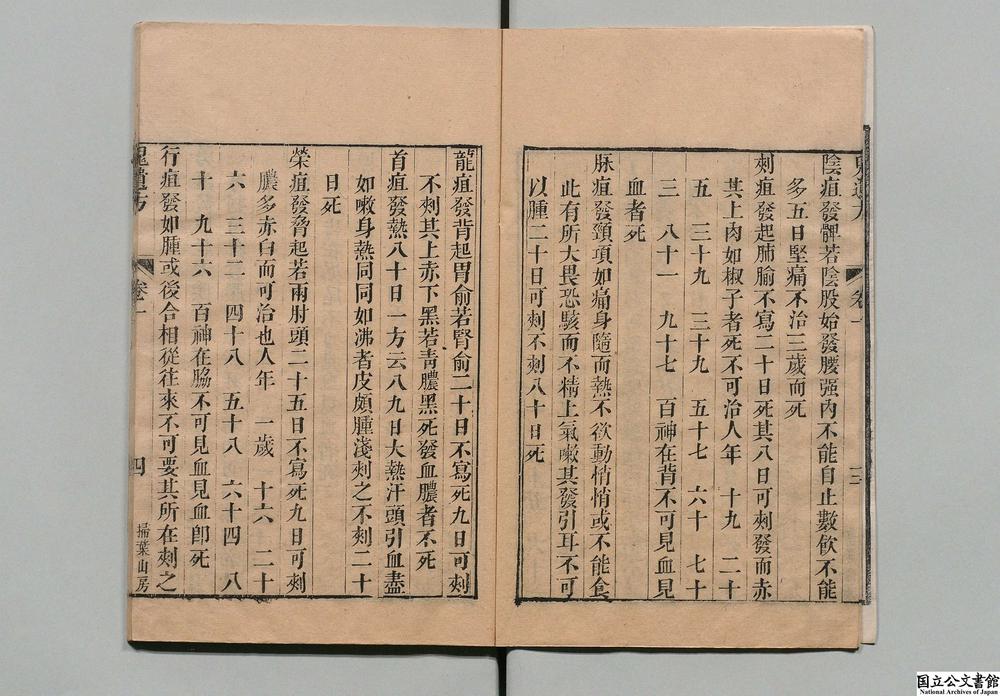 陰疽發髀若陰股始發腰强內不能自止數飲不能
多五日堅痛不治三歲而死
刺疽發起肺腧不寫二十日死其八日可刺發而赤
其上肉如椒子者死不可治人年 十九 二十
五 三十九 三十九 五十七 六十 七十
三 八十一 九十七 百神在背不可見血見
血者死
脉疽發頸項如痛身隨而熱不欲動悄悄或不能食
此有所大畏恐駭而不精上氣嗽其發引耳不可
以腫二十日可刺不刺八十日死
卷一
三
龍疽發背起胃俞若腎俞二十日不寫死九日可刺
不刺其上赤下黑若靑膿黑死發血膿者不死
首疽發熱八十日一方云八九日大熱汗頭引血盡
如嗽身熱同同如沸者皮頗腫淺刺之不刺二十
日死
榮疽發脅起若兩肘頭二十五日不寫死九日可刺
膿多赤白而可治也人年 一歲 十六 二十
六 三十二 四十八 五十八 六十四 八
十 九十六 百神在脇不可見血見血卽死
行疽發如腫或後合相從往來不可要其所在刺之
鬼遺方
卷一
四
掃葉山房
国立公文書館
National Archives of Japan